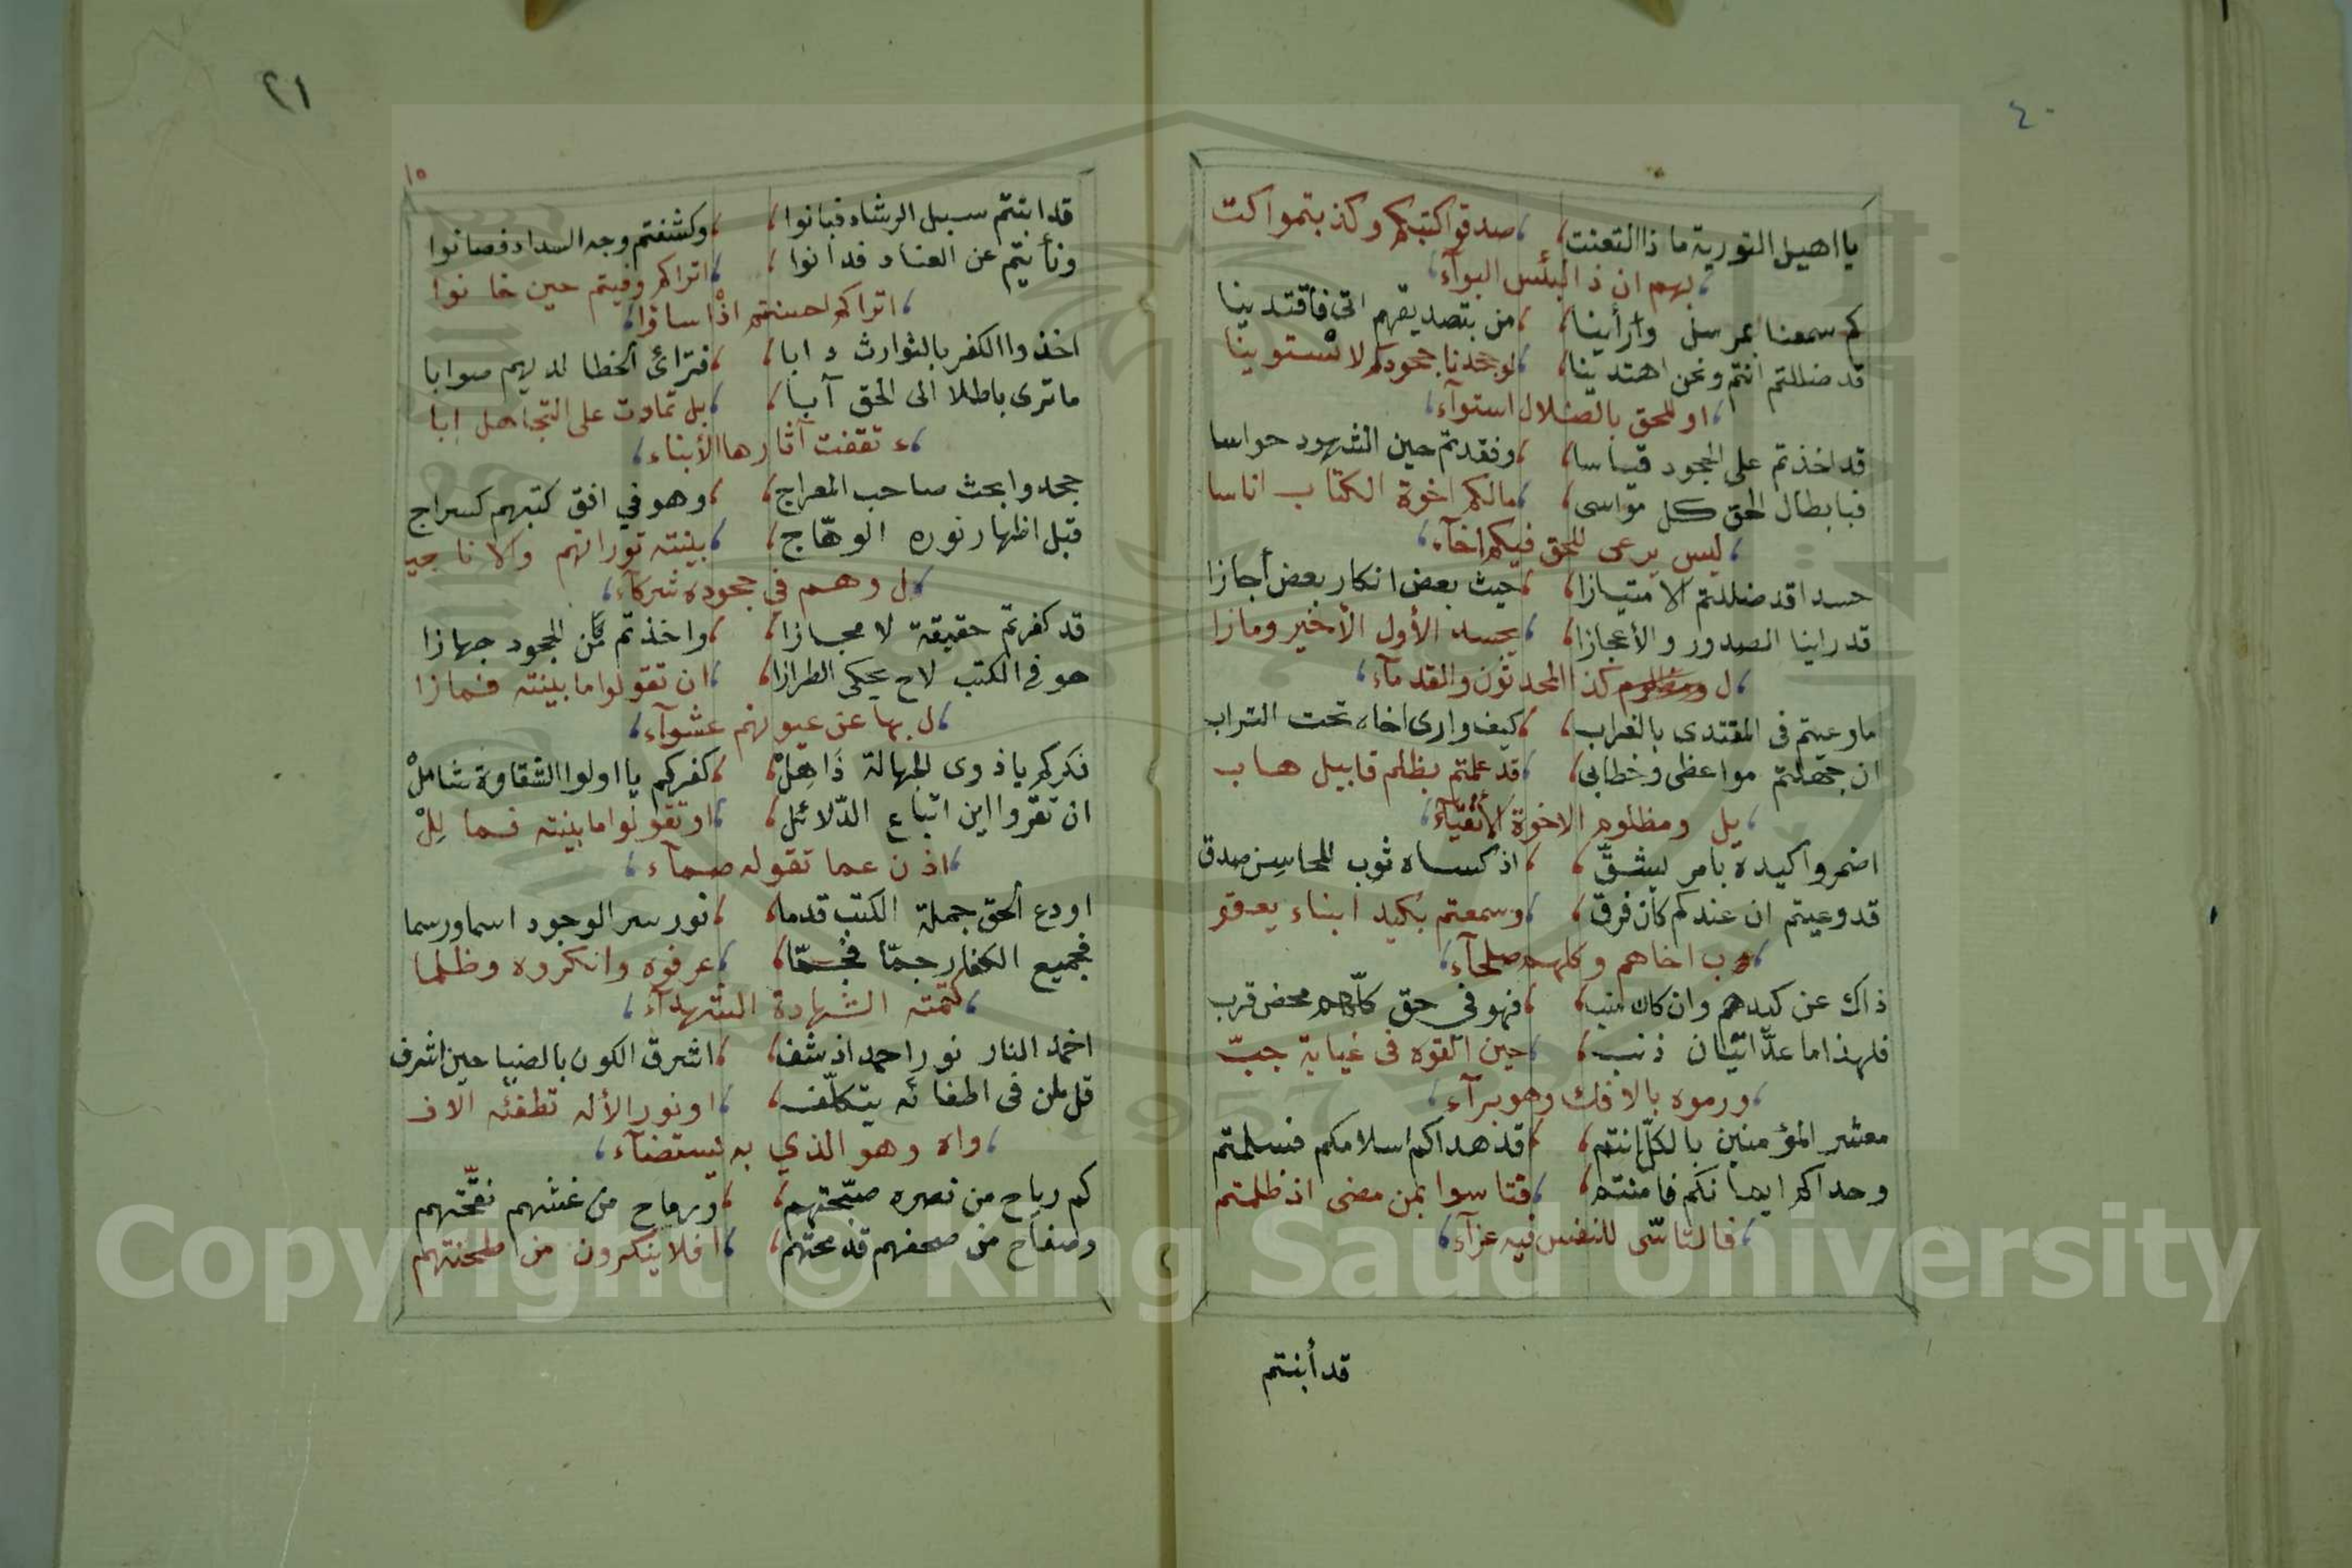 ٤٠
يا اهيل التورية ما ذا التعنت ، صدقوا كتبكم وكذبتموا كت
بهم ان ذ البئس البوآء
كم سمعنا بمرسل وارأينا ، من بتصديقهم اتى فأقتدينا
قد ضللتم انتم ونحن اهتدينا ، لوجحدنا جحودكم لاستوينا
او للحق بالضلال استوآء
قد اخذتم على الجحود قياسا ، وفقدتم حين الشهود حواسا
فبابطال الحق كل مواسى ، مالكم اخوة الكتاب اناسا
ليس يرعى للحق فيكم اخآء
حسدا قد ضللتم الامتيازا ، حيث بعض انكار بعض أجازا
قد راينا الصدور والأعجازا ، يحسد الأول الأخير ومازا
ل كذا المحدثون والقدمآء
ماوعيتم فى المقتدى بالغراب ، كيف وارى اخاه تحت التراب
ان جهلتم مواعظى وخطابى ، قد علمتم بظلم قابيل هاب
يل ومظلوم الاخوة الأتقيآء
اضمروا كيده بامر ليشقّ ، اذ كساه ثوب المحاسن صدق
قد وعيتم ان عندكم كان فرق ، وسمعتم بكيد ابناء يعقو
ب اخاهم وكلهم صلحآء
ذاك عن كيدهم وان كان منب ، فهو فى حق كلّهم محض قرب
فلهذا ما عدّ اتيان ذنب ، حين القوه فى غيابة جبّ
ورموه بالافك وهو برآء
معشر المؤمنين بالكلّ انتم ، قد هداكم اسلامكم فسلمتم
وحداكم ايمانكم فامنتم ، فتاسوا بمن مضى اذ ظلمتم
فالتاسّى للنفس فيه عزآء
قد أبنتم
٢١
١٥
قد ابنتم سبيل الرشاد فبانوا ، وكشفتم وجه السداد فصانوا
ونأيتم عن العناد فدانوا ، اتراكم وفيتم حين خانوا
اتراكم احسنتم اذْ اساؤا
اخذوا الكفر بالتوارث دابا ، فترائ الخطا لديهم صوابا
ماترى باطلا الى الحق آبا ، بل تمادت على التجاهل ابا
ء تقفت آثارها الأبناء
جحدوا بحث صاحب المعراج ، وهو في افق كتبهم كسراج
قبل اظهار نوره الوهّاج ، بينته توراتهم والاناجي
ل وهم في جحوده شركآء
قد كفرتم حقيقة لا مجازا ، واخذتم من الجحود جهازا
هو فى الكتب لاح يحكى الطرازا ، ان تقولوا ما بينته فمازا
ل بها عن عيونهم عشوآء
فكركم ياذوى الجهالة ذَاهِلْ ، كفركم يا اولوا الشقاوة شاملْ
ان تقرّوا اين اتباع الدّلائل ، او تقولوا ما بينته فما لِلْ
اذن عما تقوله صمآء
اودع الحق جملة الكتب قدما ، نور سر الوجود اسما ورسما
فجميع الكفار جمّا فجمّا ، عرفوه وانكروه وظلما
كتمته الشهادة الشهدآء
اخمد النار نور احمد اذ شف ، اشرق الكون بالضيا حين اشرف
قل لمن فى اطفائه يتكلّف ، او نور الأله تطفئه الاف
واه وهو الذي به يستضآء
كم رياح من نصره صبّحتهم ، ورماح من غثهم نقّحتهم
وصفاح من صحفهم قد محتهم ، افلا ينكرون من طحنتهم
Copyright © King Saud University
1957